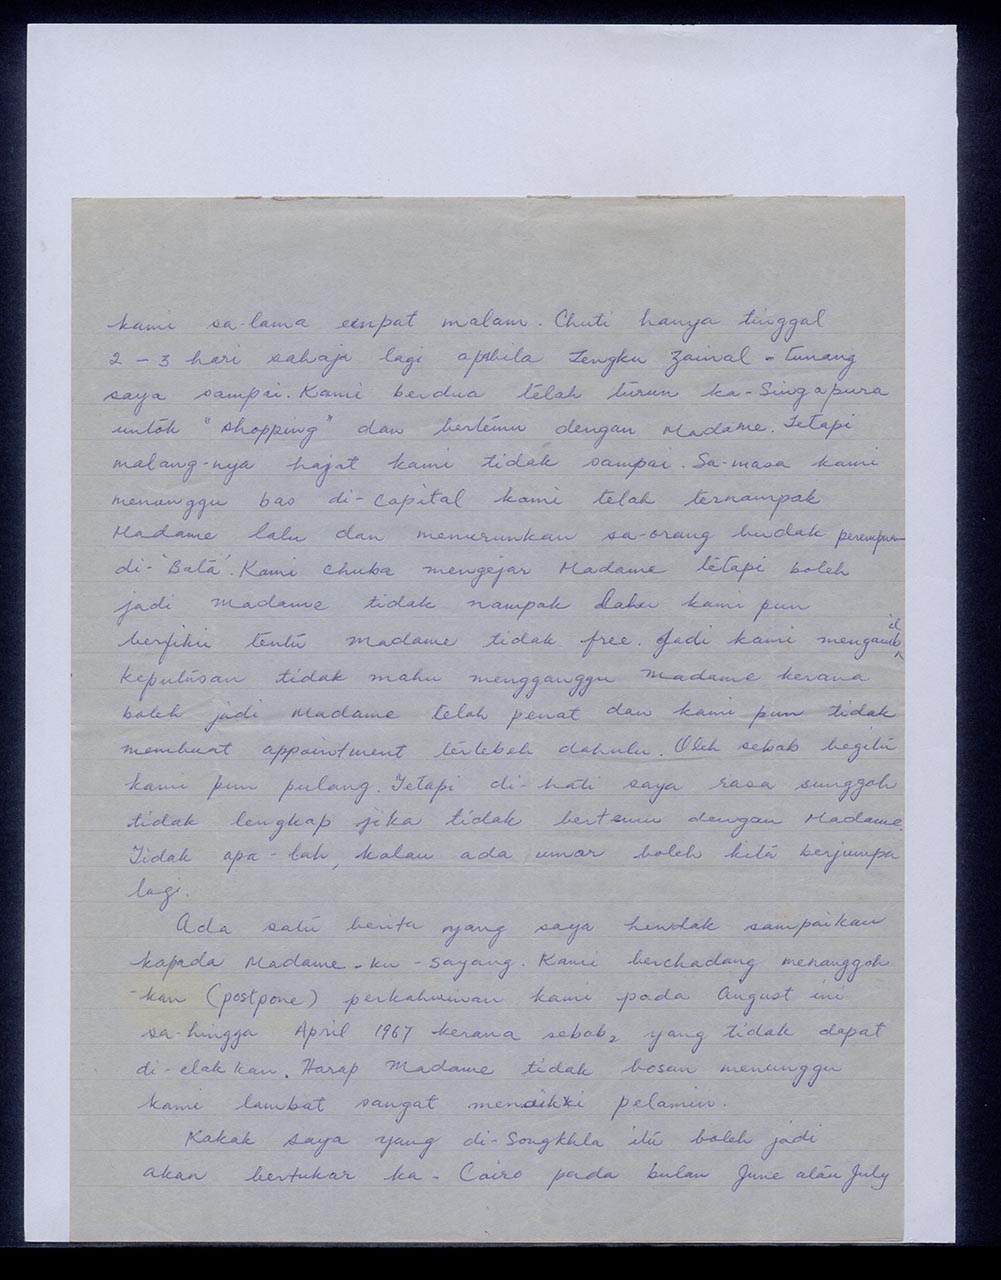 kami sa-lama empat malam. Chuti hanya tinggal
2 - 3 hari sahaja lagi apabila Tengku Zainal - tunang
saya sampai. Kami berdua telah turun ka-Singapura
untok "shopping" dan bertemu dengan Madame. Tetapi
malang-nya hajat kami tidak sampai. Sa-masa kami
menunggu bas di-Capital kami telah ternampak
Madame lalu dan menurunkan sa-orang budak perempuan
di-'Bata'. Kami chuba mengejar Madame tetapi boleh
jadi Madame tidak nampak dahu kami pun
berfikir tentu Madame tidak free. Jadi kami mengambil
keputusan tidak mahu mengganggu Madame kerana
boleh jadi Madame telah penat dan kami pun tidak
membuat appointment terlebeh dahulu. Oleh sebab begitu
kami pun pulang. Tetapi di-hati saya rasa sunggoh
tidak lengkap jika tidak bertemu dengan Madame.
Tidak apa-lah, kalau ada umor boleh kita berjumpa
lagi.
Ada satu berita yang saya hendak sampaikan
kapada Madame-ku-sayang. Kami berchadang menanggoh
-kan (postpone) perkahwinan kami pada August ini
sa-hingga April 1967 kerana sebab2 yang tidak dapat
di-elakkan. Harap Madame tidak bosan menunggu
kami lambat sangat menaiki pelamin.
Kakak saya yang di-Songkhla itu boleh jadi
akan bertukar ka-Cairo pada bulan June atau July